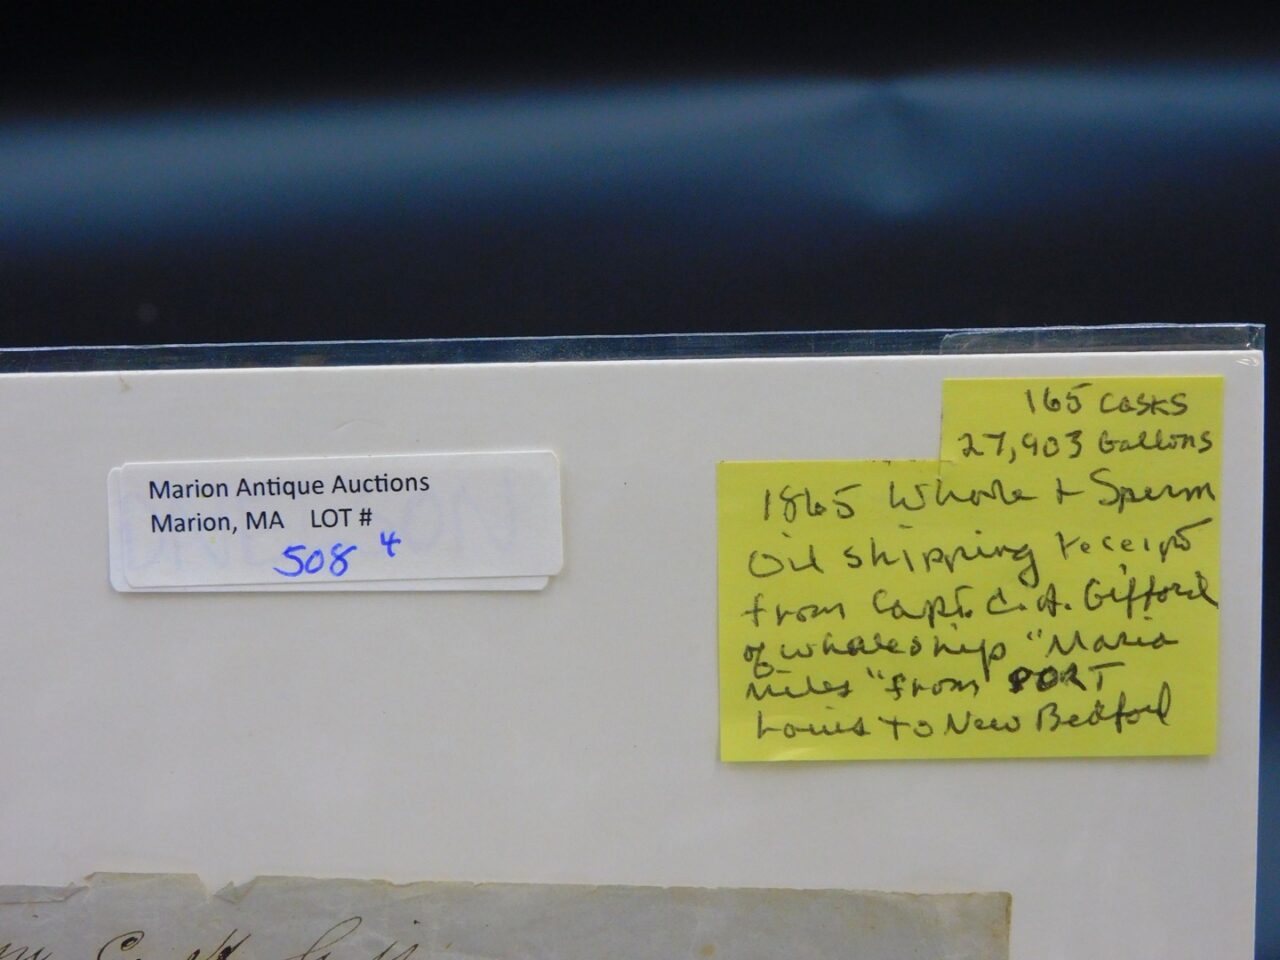 165 Casks
27,903 Gallons
Marion Antique Auctions
Marion, MA LOT #
508 4
1865 Whale + Sperm
Oil shipping receipt
from Capt. C. A. Gifford
of whaleship "Maria
Miles" from PORT
Louis to New Bedford
C. H.